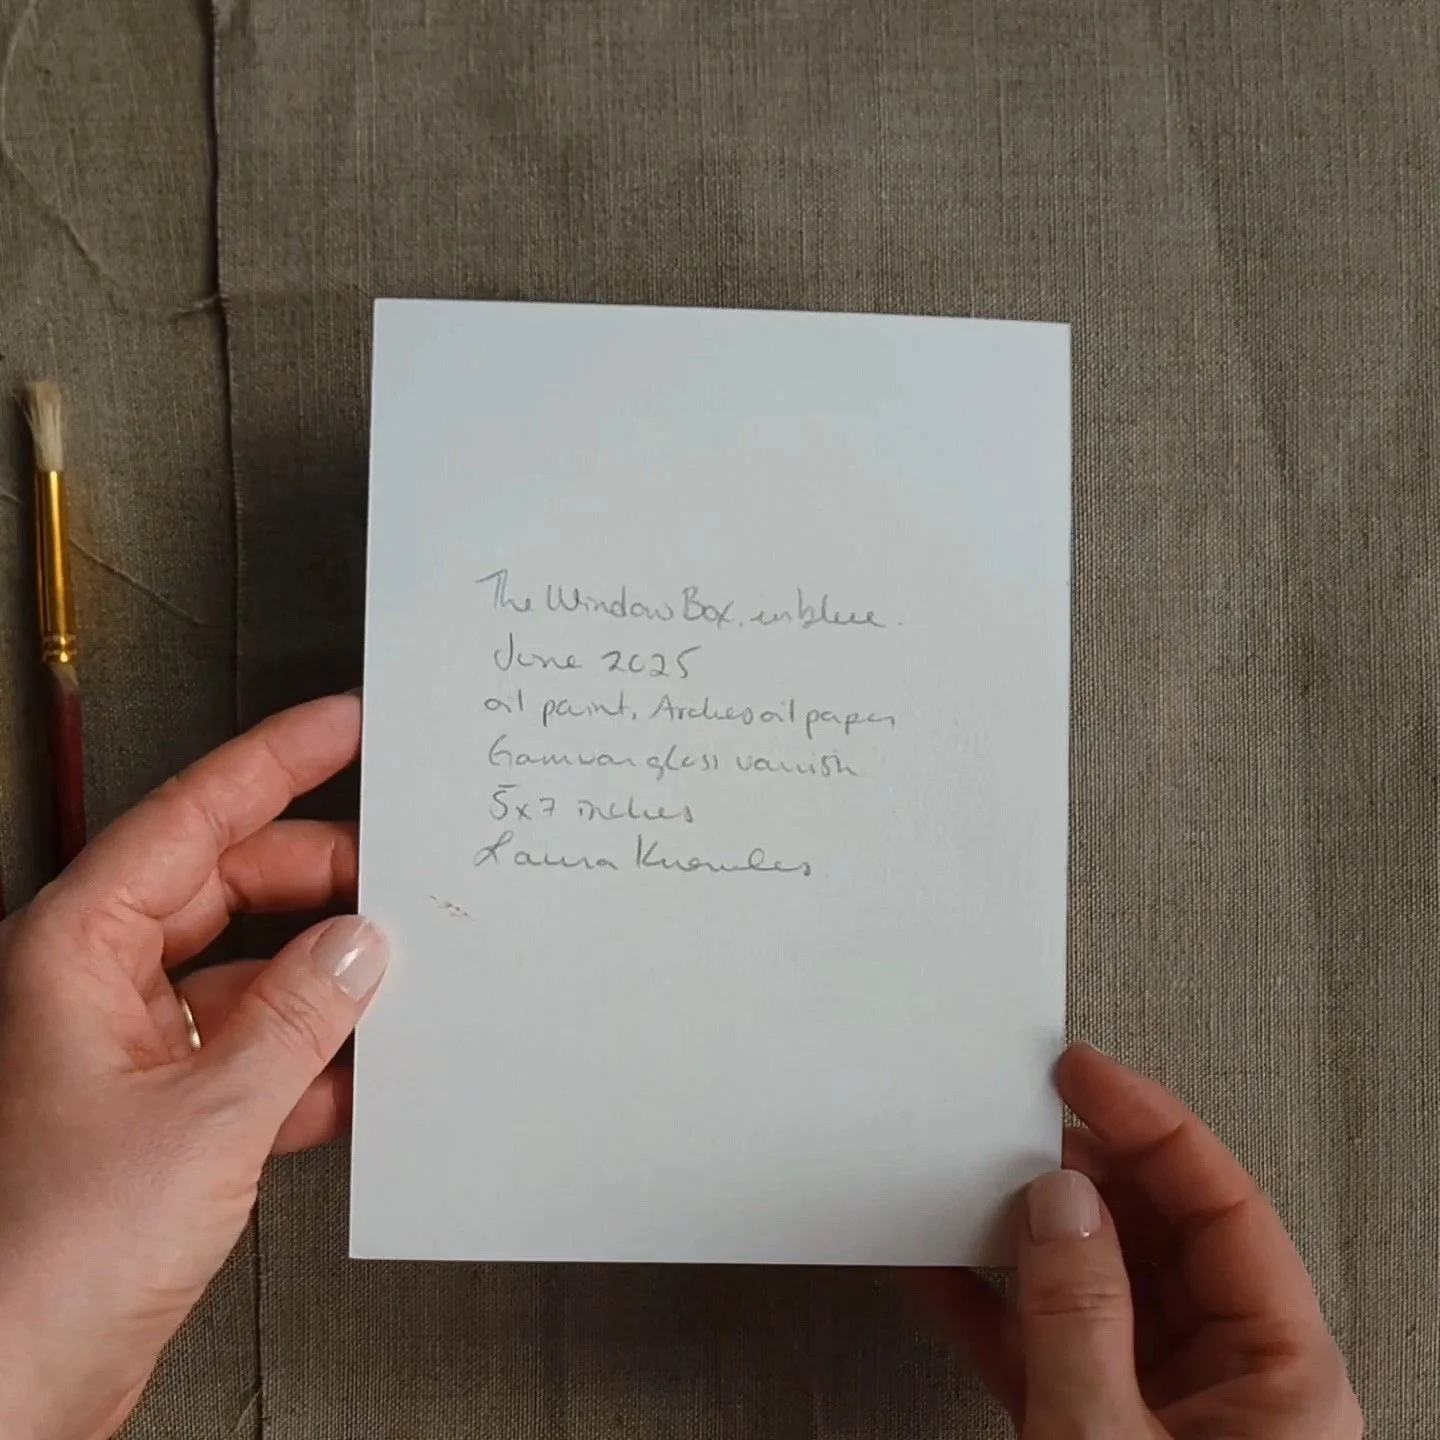 The Window Box, in blue.
June 2025
oil paint, Arches oil paper
Gamvar gloss varnish
5x7 inches
Laura Knowles